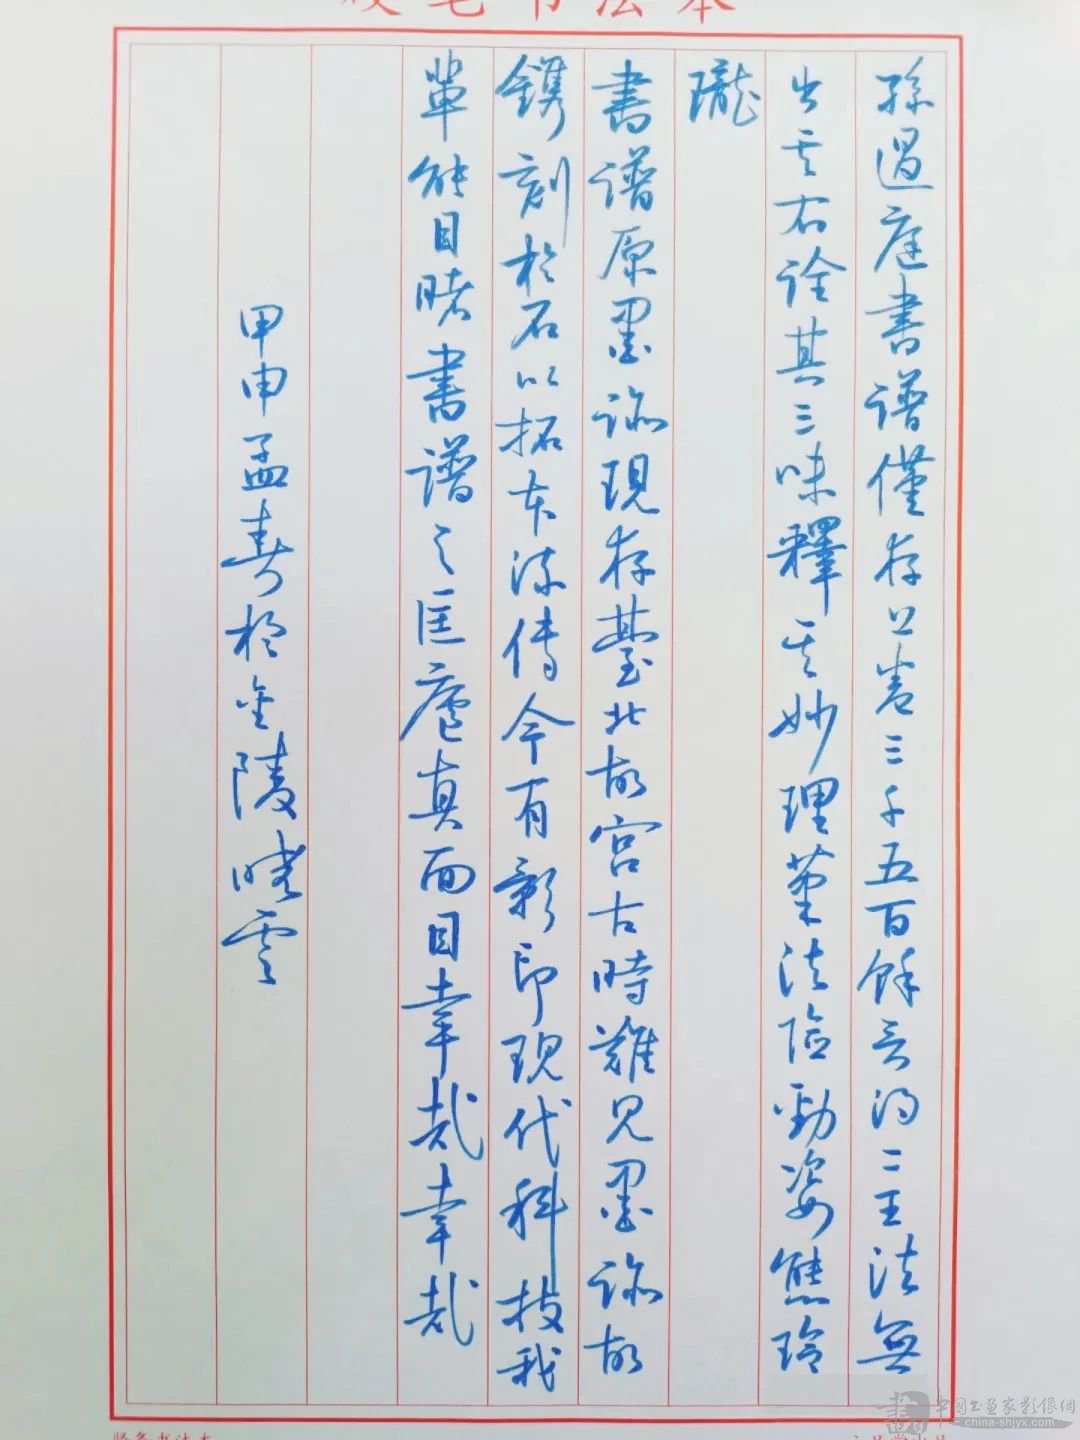 硬笔书法本
孫過庭書譜僅存上卷三千五百餘言得二王法無
出其右詮其三味釋其妙理筆法險勁姿態玲
瓏
書譜原墨跡現存臺北故宮古時難見墨跡故
鐫刻於石以拓本流傳今有影印現代科技我
輩能目睹書譜之匡廬真面目幸哉幸哉
甲申孟春於金陵曉雲
書 中國书画家影像網
china-shjyx.com